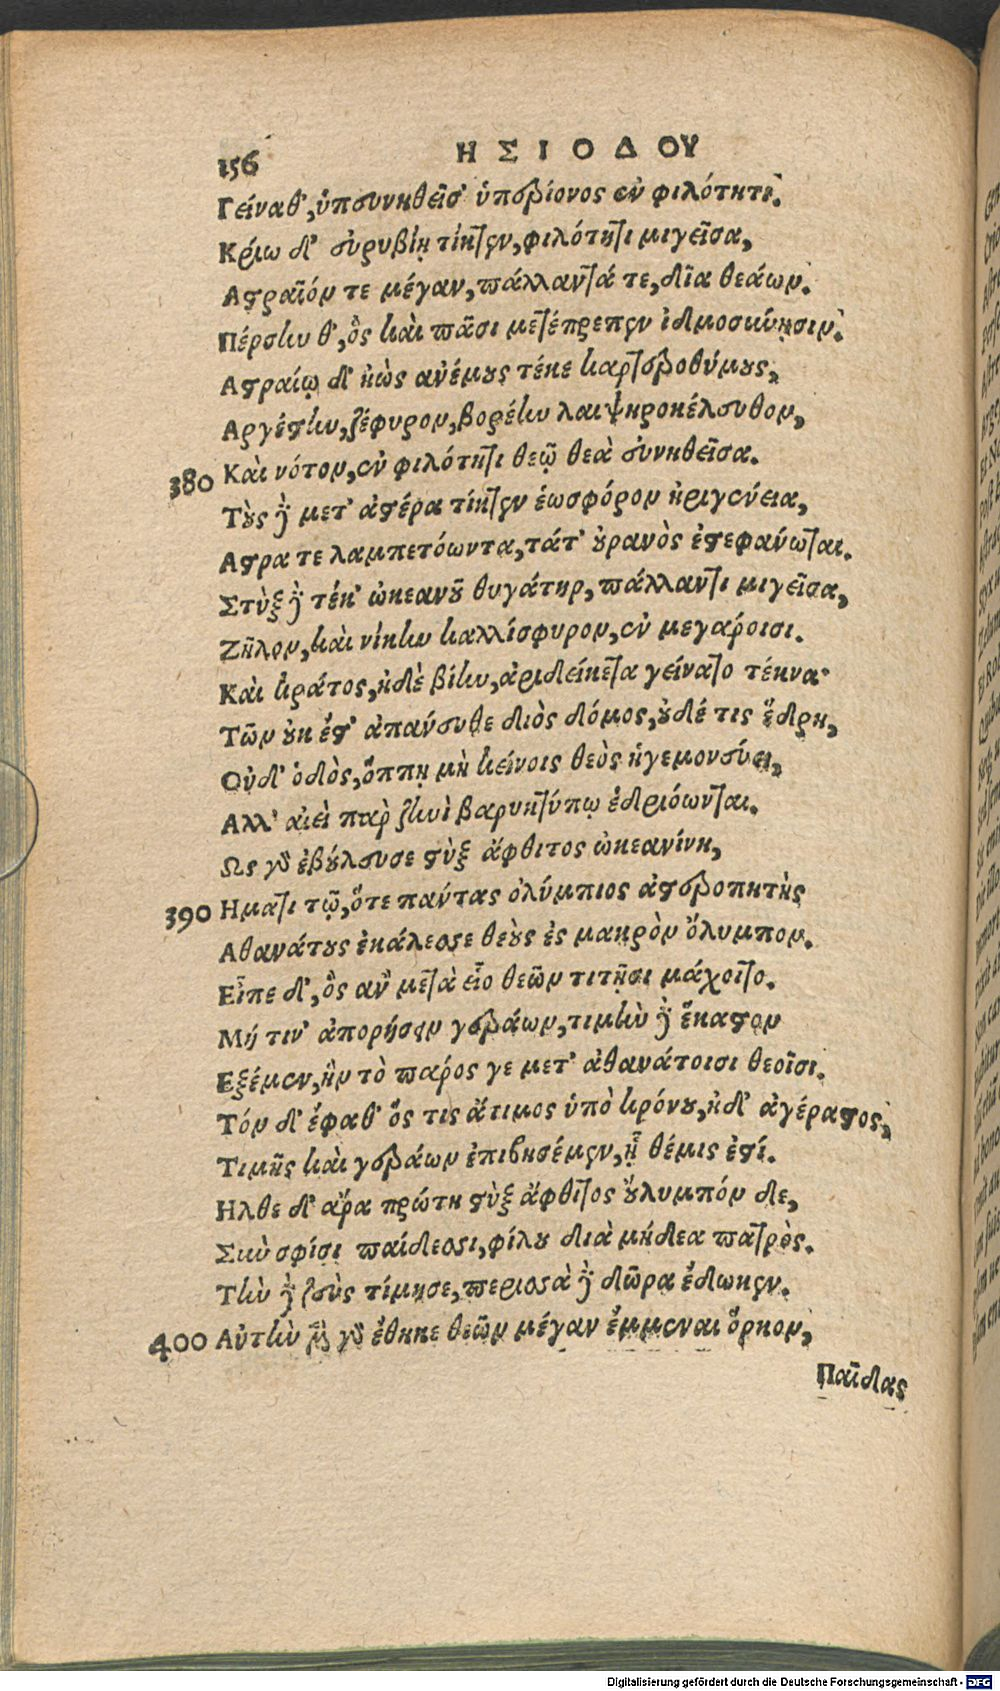 156 ΗΣΙΟΔΟΥ
Γείναθ', ὑποσυνηθεῖσ' ὑπερίονος ἐν φιλότητι.
Κρίῳ δ' εὐρυβίη τίκτεν, φιλότητι μιγεῖσα,
Αστραῖόν τε μέγαν, πάλλαντά τε, δῖα θεάων.
Πέρσην θ', ὃς καὶ πᾶσι μετέπρεπεν ἰδμοσύνῃσιν.
Αστραίῳ δ' ἠὼς ἀνέμους τέκε καρτεροθύμους,
Αργέστην, ζέφυρον, βορέην λαιψηροκέλευθον,
380 Καὶ νότον, ἐν φιλότητι θεῷ θεὰ εὐνηθεῖσα.
Τοὺς δὲ μετ' ἀστέρα τίκτεν ἑωσφόρον ἠριγένεια,
Αστρα τε λαμπετόωντα, τάτ' οὐρανὸς ἐστεφάνωται.
Στὺξ δὲ τέκ' ὠκεανοῦ θυγάτηρ, πάλλαντι μιγεῖσα,
Ζῆλον, καὶ νίκην καλλίσφυρον, ἐν μεγάροισι.
Καὶ κράτος, ἠδὲ βίην, ἀριδείκετα γείνατο τέκνα·
Τῶν οὐκ ἔστ' ἀπάνευθε διὸς δόμος, οὐδέ τις ἕδρη,
Οὐδ' ὁδὸς, ὅππῃ μὴ κείνοις θεὸς ἡγεμονεύει,
Αλλ' αἰεὶ παρ ζηνὶ βαρυκτύπῳ ἑδριόωνται.
Ως γὰρ ἐβούλευσε στὺξ ἄφθιτος ὠκεανίνη,
390 Ηματι τῷ, ὅτε πάντας ὀλύμπιος ἀστεροπητὴς
Αθανάτους ἐκάλεσσε θεοὺς ἐς μακρὸν ὄλυμπον.
Εἶπε δ', ὃς ἂν μετὰ εἷο θεῶν τιτῆσι μάχοιτο.
Μή τιν' ἀπορήσειν γεράων, τιμὴν δὲ ἕκαστον
Εξέμεν, ἣν τὸ πάρος γε μετ' ἀθανάτοισι θεοῖσι.
Τόν δ' ἔφαθ' ὅς τις ἄτιμος ὑπὸ κρόνου, ἠδ' ἀγέραστος,
Τιμῆς καὶ γεράων ἐπιβησέμεν, ᾗ θέμις ἐστί.
Ηλθε δ' ἄρα πρώτη στὺξ ἄφθιτος οὔλυμπόν δε,
Σὺν σφίσι παίδεσσι, φίλου διὰ μήδεα πατρὸς.
Τὴν δὲ ζεὺς τίμησε, περισσὰ δὲ δῶρα ἔδωκεν.
400 Αὐτὴν μὲν γὰρ ἔθηκε θεῶν μέγαν ἔμμεναι ὅρκον,
Παῖδας
Digitalisierung gefördert durch die Deutsche Forschungsgemeinschaft - DFG